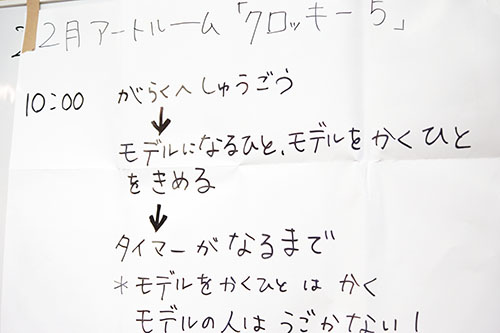 2月アートルーム「クロッキー5」
10:00 がらくへしゅうごう
↓
モデルになるひと、モデルをかくひと
をきめる
↓
タイマーがなるまで
*モデルをかくひとはかく
モデルの人はうごかない!